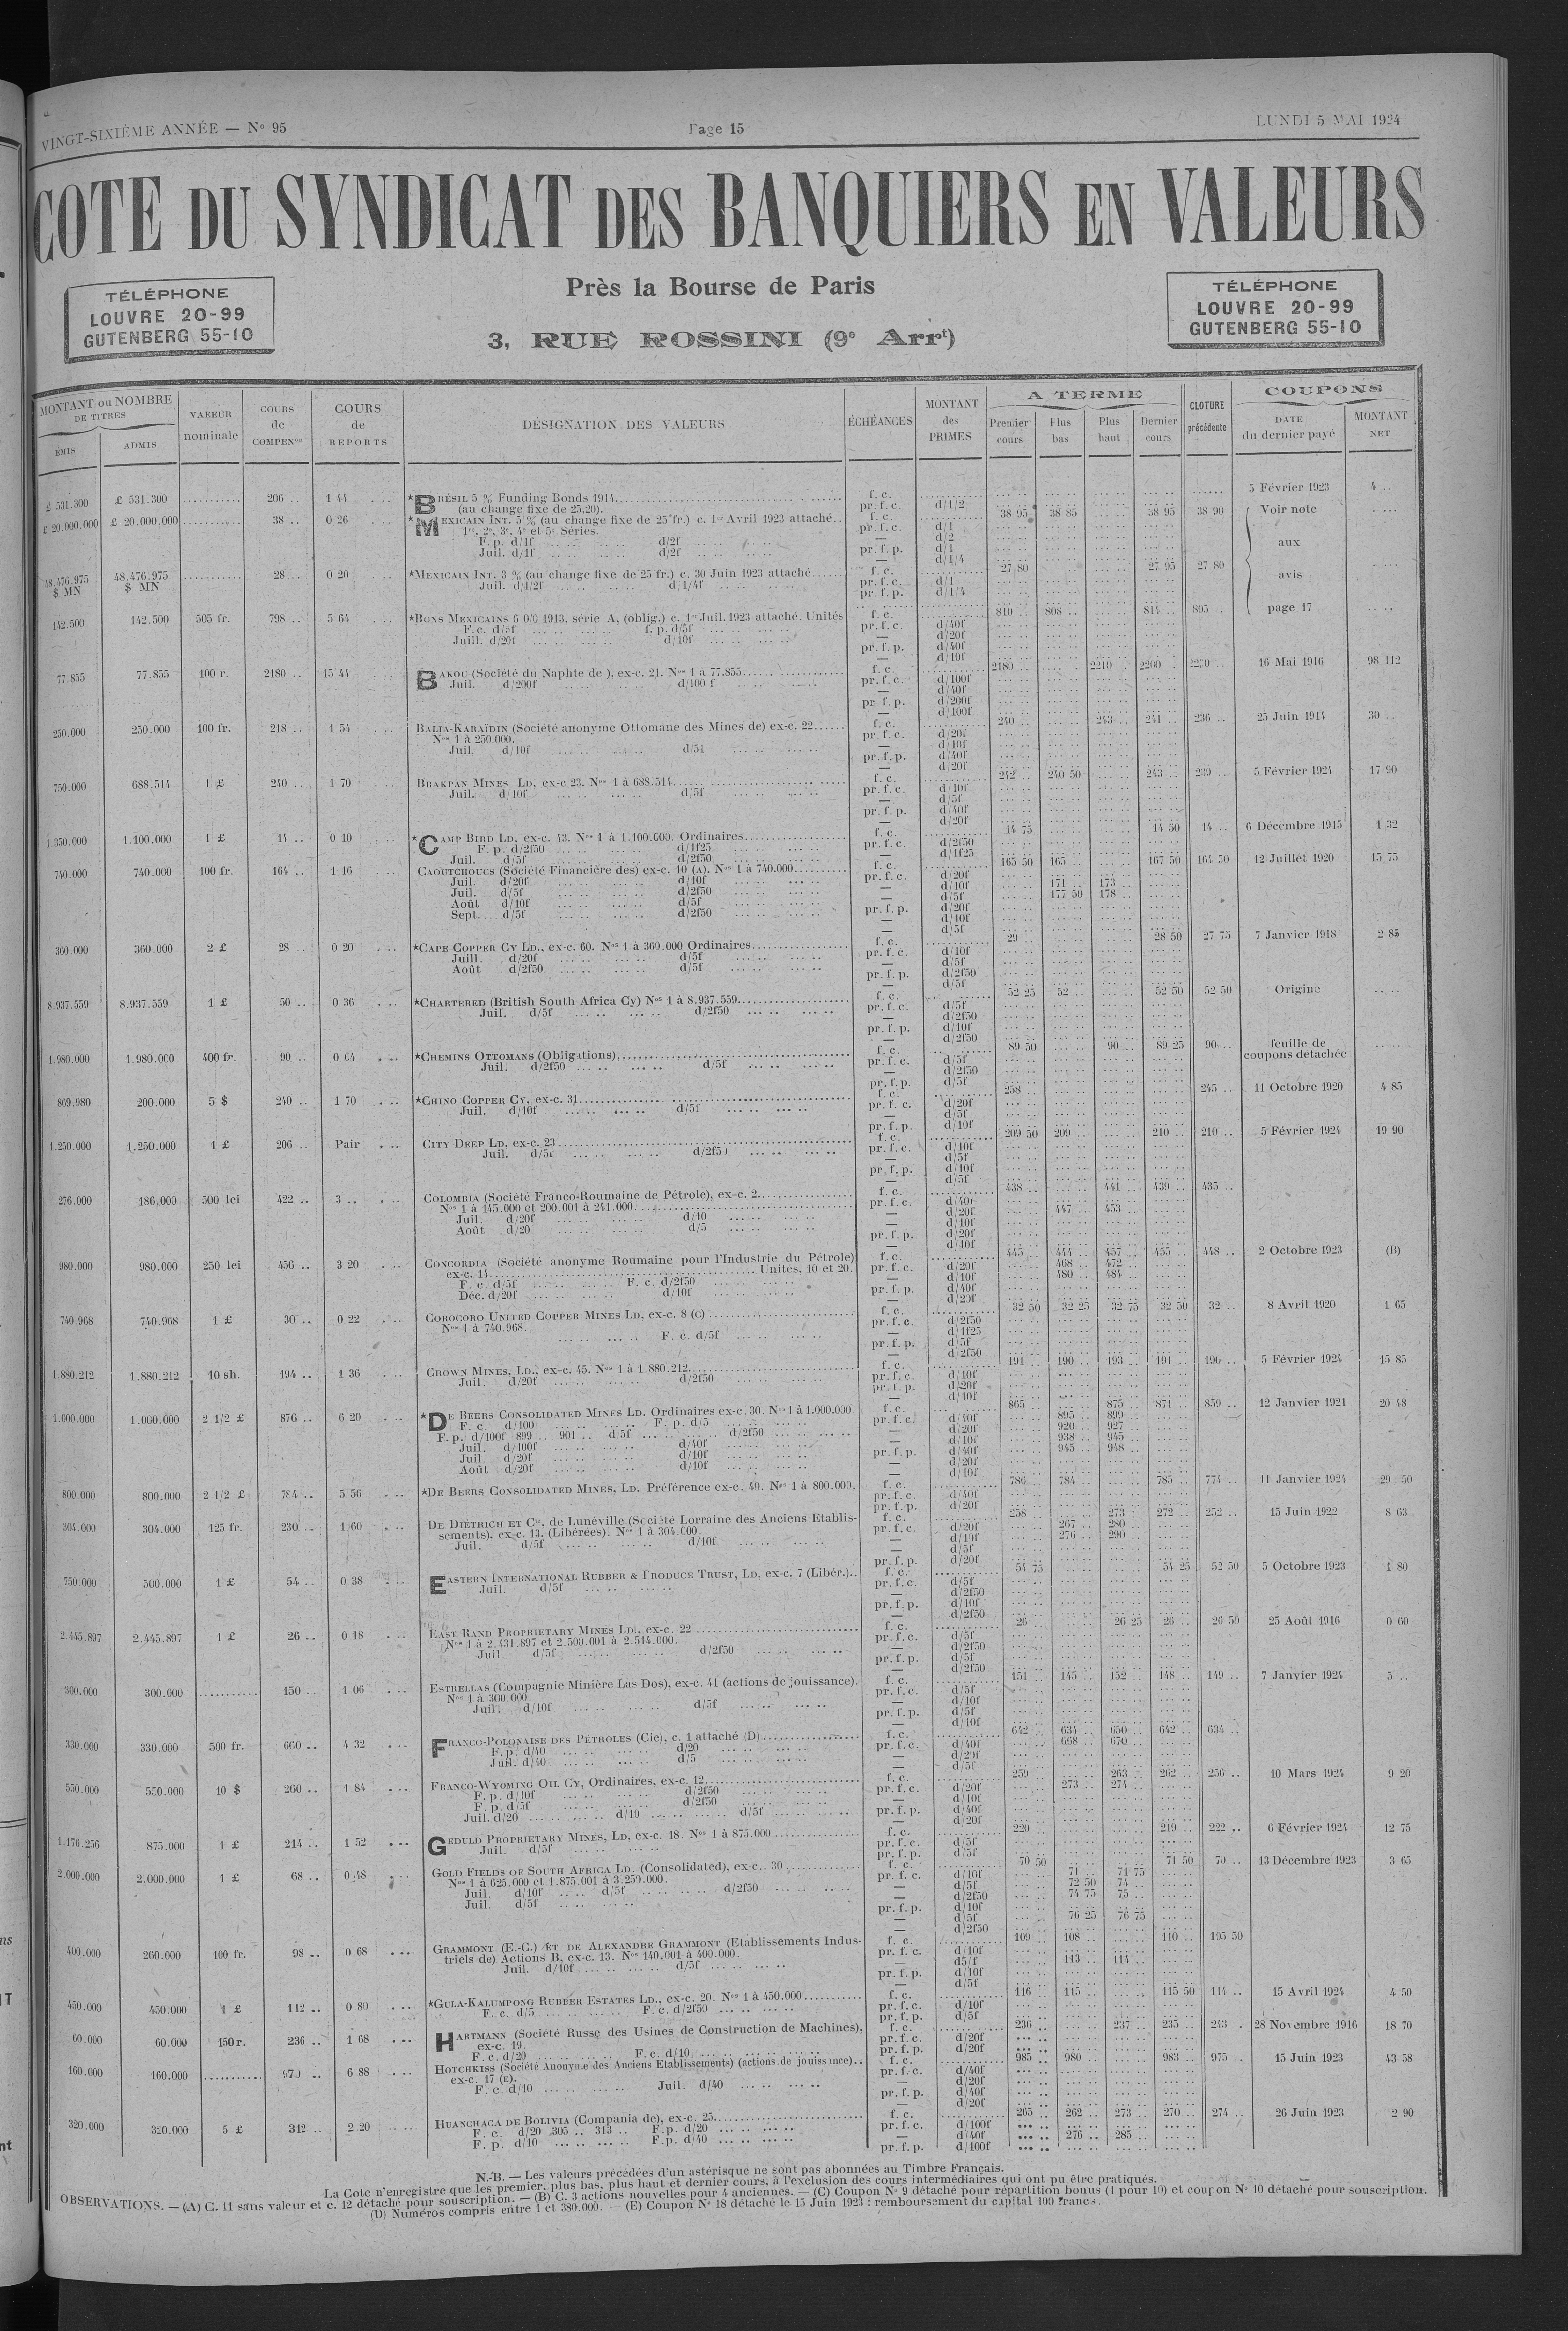 VINGT-SIXIÈME ANNÉE — N° 95
Page 15
LUNDI 5 MAI 1924
COTE DU SYNDICAT DES BANQUIERS EN VALEURS
Près la Bourse de Paris
3, RUE ROSSINI (9e Arrt)
TÉLÉPHONE
LOUVRE 20-99
GUTENBERG 55-10
TÉLÉPHONE
LOUVRE 20-99
GUTENBERG 55-10
MONTANT ou NOMBRE DE TITRES
ÉMIS
ADMIS
VALEUR nominale
COURS de COMPENSon
COURS de REPORTS
DÉSIGNATION DES VALEURS
ÉCHÉANCES
MONTANT des PRIMES
A TERME
Premier cours
Plus bas
Plus haut
Dernier cours
CLOTURE précédente
COUPONS
DATE du dernier payé
MONTANT NET
£ 531.300 £ 531.300 206 .. 1 44 *BRÉSIL 5 % Funding Bonds 1914 f. c. 5 Février 1923 4 ..
(au change fixe de 25.20). pr. f. c. d/1/2
£ 20.000.000 £ 20.000.000 38 .. 0 26 *MEXICAIN INT. 5 % (au change fixe de 25 fr.) c. 1er Avril 1923 attaché.. f. c. 38 95 38 85 38 95 38 90 Voir note
1re, 2e, 3e, 4e et 5e Séries. pr. f. c. d/1
F. p. d/1f d/2f — d/2 aux
Juil. d/1f d/2f pr. f. p. d/1
— d/1/4
48.476.975 $ MN 48.476.975 $ MN 28 .. 0 20 *MEXICAIN INT. 3 % (au change fixe de 25 fr.) c. 30 Juin 1923 attaché f. c. 27 80 27 95 27 80 avis
Juil. d/1/2f d/1/4f pr. f. c. d/1
pr. f. p. d/1/4
142.500 142.500 505 fr. 798 .. 5 64 *BONS MEXICAINS 6 0/0 1913, série A, (oblig.) c. 1er Juil. 1923 attaché. Unités f. c. 810 .. 808 .. 814 .. 805 . page 17
F. c. d/5f f. p. d/5f pr. f. c. d/40f
Juill. d/20f d/10f — d/20f
pr. f. p. d/40f
— d/10f
77.855 77.855 100 r. 2180 .. 15 44 BAKOU (Société du Naphte de ), ex-c. 21. Nos 1 à 77.855 f. c. 2180 .. 2210 . 2200 . 16 Mai 1916 98 112
Juil. d/200f d/100 f pr. f. c. d/100f
— d/40f
pr. f. p. d/200f
— d/100f
250.000 250.000 100 fr. 218 .. 1 54 BALIA-KARAÏDIN (Société anonyme Ottomane des Mines de) ex-c. 22 f. c. 240 .. 243 .. 241 .. 236 .. 25 Juin 1914 30 ..
Nos 1 à 250.000. pr. f. c. d/20f
Juil. d/10f d/5f — d/10f
pr. f. p. d/40f
— d/20f
750.000 688.514 1 £ 240 .. 1 70 BRAKPAN MINES LD, ex-c 23. Nos 1 à 688.514 f. c. 242 .. 240 50 243 .. 239 .. 5 Février 1924 17 90
Juil. d/10f d/5f pr. f. c. d/10f
— d/5f
pr. f. p. d/40f
— d/20f
1.350.000 1.100.000 1 £ 14 .. 0 10 *CAMP BIRD LD, ex-c. 43. Nos 1 à 1.100.000. Ordinaires f. c. 14 75 14 50 14 .. 6 Décembre 1915 1 32
F. p. d/2f50 d/1f25 pr. f. c. d/2f50
Juil. d/5f d/2f50 — d/1f25
740.000 740.000 100 fr. 164 .. 1 16 CAOUTCHOUCS (Société Financière des) ex-c. 10 (A). Nos 1 à 740.000 f. c. 165 50 165 .. 167 50 164 50 12 Juillet 1920 15 75
Juil. d/20f d/10f pr. f. c. d/20f
Juil. d/5f d/2f50 — d/10f 171 .. 173 ..
Août d/10f d/5f — d/5f 177 50 178 ..
Sept. d/5f d/2f50 pr. f. p. d/20f
— d/10f
— d/5f
360.000 360.000 2 £ 28 0 20 *CAPE COPPER CY LD., ex-c. 60. Nos 1 à 360.000 Ordinaires f. c. 29 .. 28 50 27 75 7 Janvier 1918 2 85
Juill. d/20f d/5f pr. f. c. d/10f
Août d/2f50 d/5f — d/5f
pr. f. p. d/2f50
— d/5f
8.937.559 8.937.559 1 £ 50 .. 0 36 *CHARTERED (British South Africa Cy) Nos 1 à 8.937.559 f. c. 52 25 52 .. 52 50 52 50 Origine
Juil. d/5f d/2f50 pr. f. c. d/5f
— d/2f50
pr. f. p. d/10f
— d/2f50
1.980.000 1.980.000 400 fr. 90 .. 0 64 *CHEMINS OTTOMANS (Obligations) f. c. 89 50 90 .. 89 25 90 .. feuille de coupons détachée
Juil. d/2f50 d/5f pr. f. c. d/5f
— d/2f50
pr. f. p. d/5f
869.980 200.000 5 $ 240 .. 1 70 *CHINO COPPER CY, ex-c. 31 f. c. 258 .. 245 .. 11 Octobre 1920 4 85
Juil. d/10f d/5f pr. f. c. d/20f
— d/5f
pr. f. p. d/10f
1.250.000 1.250.000 1 £ 206 .. Pair CITY DEEP LD, ex-c. 23 f. c. 209 50 209 .. 210 .. 210 .. 5 Février 1924 19 90
Juil. d/5f d/2f50 pr. f. c. d/10f
— d/5f
pr. f. p. d/10f
— d/5f
276.000 186.000 500 lei 422 .. 3 .. COLOMBIA (Société Franco-Roumaine de Pétrole), ex-c. 2 f. c. 438 .. 441 .. 439 .. 435 ..
Nos 1 à 145.000 et 200.001 à 241.000 pr. f. c. d/40f
Juil. d/20f d/10 — d/20f 447 .. 453 ..
Août d/20 d/5 — d/10f
pr. f. p. d/20f
— d/10f
980.000 980.000 250 lei 456 .. 3 20 CONCORDIA (Société anonyme Roumaine pour l'Industrie du Pétrole) f. c. 445 .. 444 .. 457 .. 455 .. 448 .. 2 Octobre 1923 (B)
ex-c. 14 Unités, 10 et 20. pr. f. c. d/20f 468 .. 472 ..
F. c. d/5f F. c. d/2f50 — d/10f 480 .. 484 ..
Déc. d/20f d/10f pr. f. p. d/40f
— d/20f
740.968 740.968 1 £ 30 .. 0 22 COROCORO UNITED COPPER MINES LD, ex-c. 8 (C) f. c. 32 50 32 25 32 75 32 50 32 .. 8 Avril 1920 1 65
Nos 1 à 740.968. F. c. d/5f pr. f. c. d/2f50
— d/1f25
pr. f. p. d/5f
— d/2f50
1.880.212 1.880.212 10 sh. 194 .. 1 36 CROWN MINES, LD., ex-c. 45. Nos 1 à 1.880.212 f. c. 191 .. 190 .. 193 .. 191 .. 190 .. 5 Février 1924 15 85
Juil. d/20f d/2f50 pr. f. c. d/10f
pr. f. p. d/20f
— d/10f
1.000.000 1.000.000 2 1/2 £ 876 .. 6 20 *DE BEERS CONSOLIDATED MINES LD. Ordinaires ex-c. 30. Nos 1 à 1.000.000 f. c. 865 .. 875 .. 871 .. 859 .. 12 Janvier 1921 20 48
F. c. d/100 F. p. d/5 pr. f. c. d/40f 895 .. 899 ..
F. p. d/100f 899 .. 901 .. d/5f d/2f50 — d/20f 920 .. 927
Juil. d/100f d/40f — d/10f 938 .. 945 ..
Juil. d/20f d/10f pr. f. p. d/40f 945 .. 948 ..
Août d/20f d/10f — d/20f
— d/10f
800.000 800.000 2 1/2 £ 784 .. 5 56 *DE BEERS CONSOLIDATED MINES, LD. Préférence ex-c. 40. Nos 1 à 800.000. f. c. 786 .. 784 .. 785 .. 774 .. 11 Janvier 1924 29 50
pr. f. c. d/40f
pr. f. p. d/20f
304.000 304.000 125 fr. 230 .. 1 60 DE DIÉTRICH ET Cie, de Lunéville (Société Lorraine des Anciens Etablis- f. c. 258 .. 273 .. 272 .. 252 .. 15 Juin 1922 8 63
sements), ex-c. 13. (Libérées). Nos 1 à 304.000. pr. f. c. d/20f 267 .. 280 ..
Juil. d/5f d/10f — d/10f 276 .. 290 ..
— d/5f
pr. f. p. d/20f
750.000 500.000 1 £ 54 .. 0 38 EASTERN INTERNATIONAL RUBBER & PRODUCE TRUST, LD, ex-c. 7 (Libér.).. f. c. 54 75 54 25 52 50 5 Octobre 1923 1 80
Juil. d/5f pr. f. c. d/5f
— d/2f50
pr. f. p. d/10f
— d/2f50
2.445.897 2.445.897 1 £ 26 .. 0 18 EAST RAND PROPRIETARY MINES LD., ex-c. 22 f. c. 26 .. 26 25 26 .. 26 50 25 Août 1916 0 60
Nos 1 à 2.431.897 et 2.500.001 à 2.514.000. pr. f. c. d/5f
Juil. d/5f d/2f50 — d/2f50
pr. f. p. d/5f
— d/2f50
300.000 300.000 150 .. 1 06 ESTRELLAS (Compagnie Minière Las Dos), ex-c. 41 (actions de jouissance). f. c. 151 .. 145 .. 152 .. 148 .. 149 .. 7 Janvier 1924 5 ..
Nos 1 à 300.000. pr. f. c. d/5f
Juil. d/10f d/5f — d/10f
pr. f. p. d/5f
— d/10f
330.000 330.000 500 fr. 660 .. 4 32 FRANCO-POLONAISE DES PÉTROLES (Cie), c. 1 attaché (D) f. c. 642 .. 634 .. 650 .. 642 .. 634 ..
F. p. d/40 d/20 pr. f. c. d/40f 668 .. 670 ..
Juil. d/40 d/5 — d/20f
— d/5f
550.000 550.000 10 $ 260 .. 1 84 FRANCO-WYOMING OIL CY, Ordinaires, ex-c. 12 f. c. 259 .. 263 .. 262 .. 256 .. 10 Mars 1924 9 20
F. p. d/10f d/2f50 pr. f. c. d/20f 273 .. 274 ..
F. p. d/5f d/2f50 — d/10f
Juil. d/20 d/10 d/5f pr. f. p. d/40f
— d/20f
1.176.256 875.000 1 £ 214 .. 1 52 GEDULD PROPRIETARY MINES, LD, ex-c. 18. Nos 1 à 875.000 f. c. 220 .. 219 .. 222 .. 6 Février 1924 12 75
Juil. d/5f pr. f. c. d/5f
pr. f. p. d/5f
2.000.000 2.000.000 1 £ 68 .. 0 48 GOLD FIELDS OF SOUTH AFRICA LD. (Consolidated), ex-c. 30 f. c. 70 50 71 50 70 .. 13 Décembre 1923 3 65
Nos 1 à 625.000 et 1.875.001 à 3.250.000. pr. f. c. d/10f 71 .. 71 75
Juil. d/10f d/5f d/2f50 — d/5f 72 50 74 ..
Juil. d/5f — d/2f50 74 75 75 ..
pr. f. p. d/10f
— d/5f 76 25 76 75
— d/2f50
400.000 260.000 100 fr. 98 .. 0 68 GRAMMONT (E.-C.) ET DE ALEXANDRE GRAMMONT (Etablissements Indus- f. c. 109 .. 108 .. 110 .. 105 50
triels de) Actions B, ex-c. 13. Nos 140.001 à 400.000. pr. f. c. d/10f
Juil. d/10f d/5f — d5/f 113 .. 114 ..
pr. f. p. d/10f
— d/5f
450.000 450.000 1 £ 112 .. 0 80 *GULA-KALUMPONG RUBBER ESTATES LD., ex-c. 20. Nos 1 à 450.000 f. c. 116 .. 115 .. 115 50 114 .. 15 Avril 1924 4 50
F. c. d/5 F. c. d/2f50 pr. f. c. d/10f
pr. f. p. d/5f
60.000 60.000 150 r. 236 .. 1 68 HARTMANN (Société Russe des Usines de Construction de Machines), f. c. 236 .. 237 .. 235 .. 243 . 28 Novembre 1916 18 70
ex-c. 19. pr. f. c. d/20f
F. c. d/20 F. c. d/10 pr. f. p. d/20f
160.000 160.000 970 .. 6 88 HOTCHKISS (Société Anonyme des Anciens Etablissements) (actions de jouissance).. f. c. 985 .. 980 .. 983 .. 975 . 15 Juin 1923 43 58
ex-c. 17 (E). pr. f. c. d/40f
F. c. d/10 Juil. d/40 — d/20f
pr. f. p. d/40f
— d/20f
320.000 320.000 5 £ 312 .. 2 20 HUANCHACA DE BOLIVIA (Compania de), ex-c. 25 f. c. 265 .. 262 .. 273 .. 270 .. 274 .. 26 Juin 1923 2 90
F. c. d/20 305 .. 313 .. F.p. d/20 pr. f. c. d/100f
F. p. d/10 F.p. d/40 — d/40f 276 .. 285 ..
pr. f. p. d/100f
N.-B. — Les valeurs précédées d'un astérisque ne sont pas abonnées au Timbre Français.
La Cote n'enregistre que les premier, plus bas, plus haut et dernier cours, à l'exclusion des cours intermédiaires qui ont pu être pratiqués.
OBSERVATIONS. — (A) C. 11 sans valeur et c. 12 détaché pour souscription. — (B) C. 3 actions nouvelles pour 4 anciennes. — (C) Coupon N° 9 détaché pour répartition bonus (1 pour 10) et coupon N° 10 détaché pour souscription.
(D) Numéros compris entre 1 et 380.000. — (E) Coupon N° 18 détaché le 15 Juin 1923 : remboursement du capital 100 francs.